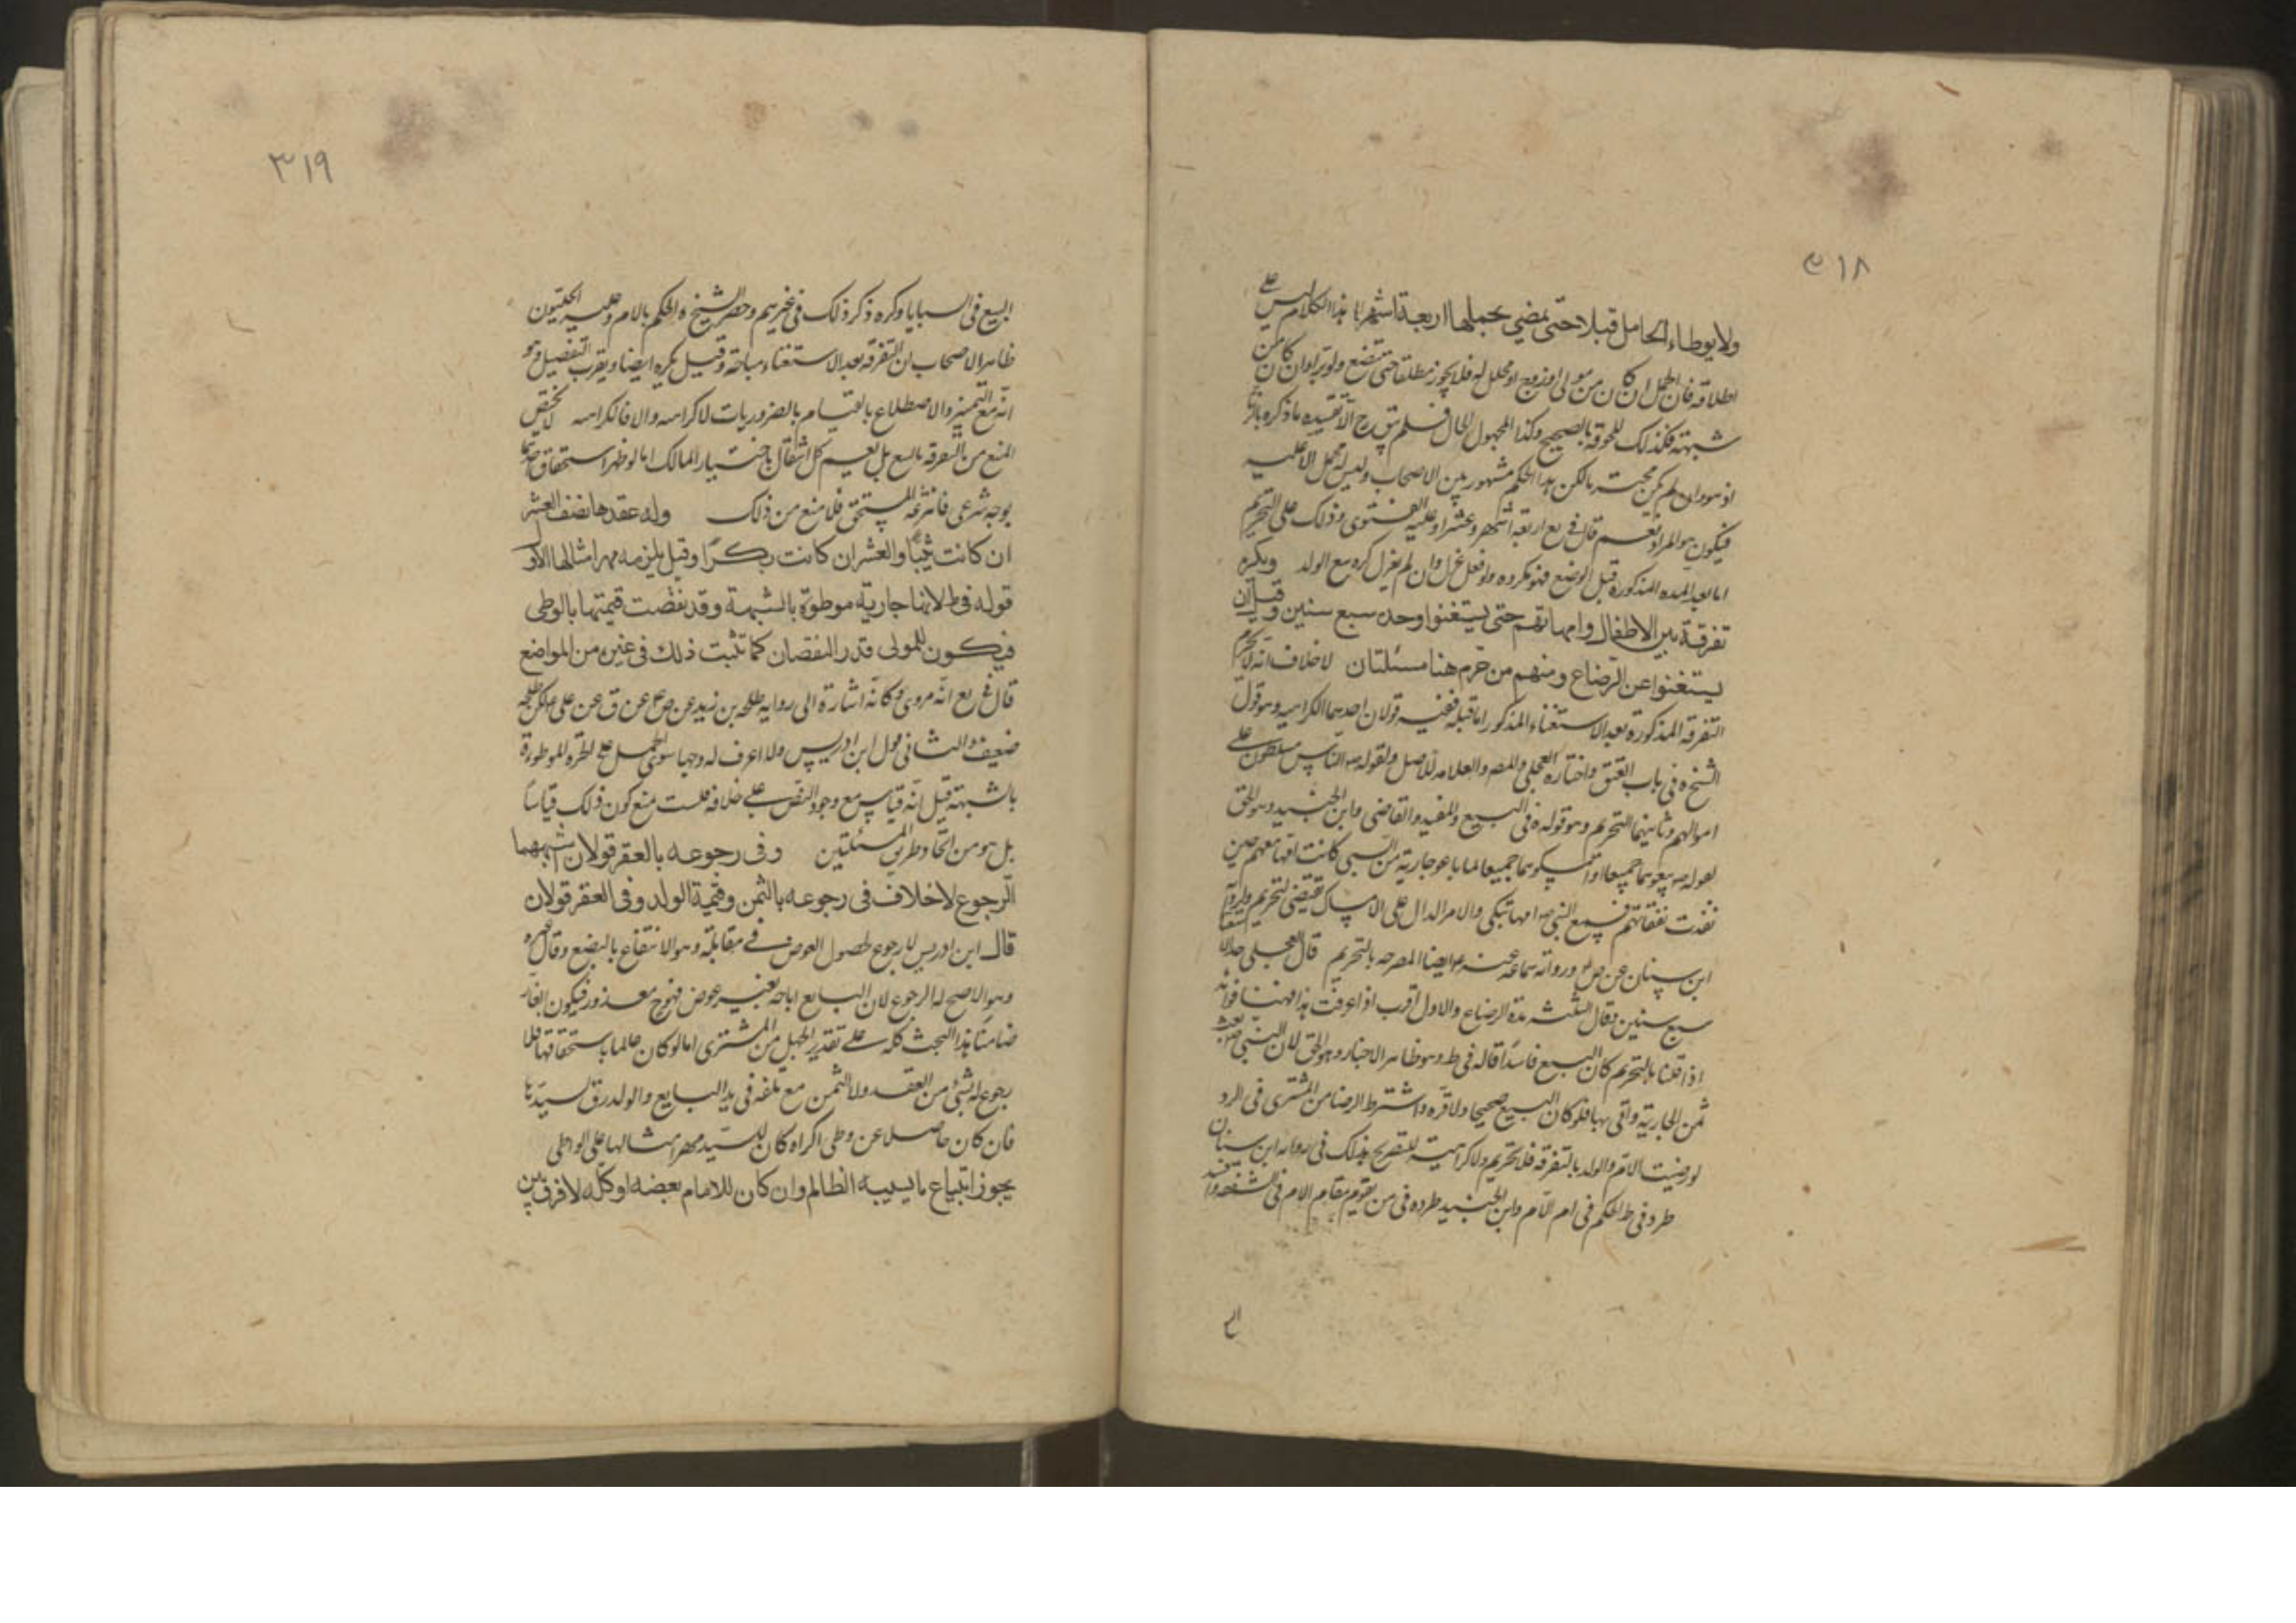 ٣١٨
ولا يوطاء الحامل قبلا حتى يمضي بحملها اربعة اشهر هذا الكلام ليس على
اطلاقه فان الحمل ان كان من مولى او زوج او محلل له فلا يجوز مطلقا حتى تضع ولو تبرا وان كان من
شبهة فكذلك للحوقه بالصحيح وكذا المجهول الحال فلم يبق ح الا تقييده بما ذكره بالزنا
اذ هو وان لم يكن محترما لكن هذا الحكم مشهور بين الاصحاب وليس له محمل الا عليه
فيكون هو المراد نعم قال في يع اربعة اشهر وعشرا وعليه الفتوى وذلك على التحريم
اما بعد المدة المذكورة قبل الوضع فهو مكروه ولو فعل عزل وان لم يعزل كره بيع الولد ويكره
تفرقة بين الاطفال وامهاتهم حتى يستغنوا وحده سبع سنين وقيل ان
يستغنوا عن الرضاع ومنهم من حرم هنا مسئلتان لا خلاف انه لا يحرم
التفرقة المذكورة بعد الاستغناء المذكور اما قبله ففيه قولان احدهما الكراهية وهو قول
الشيخ ره في باب العتق واختاره العجلي والمص والعلامه للاصل ولقوله ص الناس مسلطون على
اموالهم وثانيهما التحريم وهو قوله ره في البيع والمفيد والقاضي وابن الجنيد وهو الحق
لقوله ص بيعوهما جميعا او امسكوهما جميعا لما باعوا جارية من السبي كانت امها معهم حين
نفدت نفقاتهم فسمع النبي ص امها تبكي والامر الدال على الامساك يقتضي التحريم ولرواية
ابن سنان عن ص ع ورواية سماعة عنه ع ايضا المصرحه بالتحريم قال العجلي حد الاستغناء
سبع سنين وقال الثلثه مدة الرضاع والاول اقرب اذا عرفت هذا فهنا فوائد
اذا قلنا بالتحريم كان البيع فاسدا قاله في ط وهو ظاهر الاخبار وهو الحق لان النبي ص بعث
ثمن الجارية واتى بها فلو كان البيع صحيحا ولاقره واشترط الرضا من المشتري في الرد
لو رضيت الام والولد بالتفرقة فلا تحريم ولا كراهية للتصريح بذلك في رواية ابن سنان
طرد في ط الحكم في ام الام وابن الجنيد طرده في من يقوم مقام الام في الشفقة
٣١٩
البيع في السبايا وكره ذكر ذلك في غيرهم وحصر الشيخ ره الحكم بالام وعليه الحليون
ظاهر الاصحاب ان التفرقة بعد الاستغناء مباحة وقيل يكره ايضا ويقرب التفصيل وهو
انه مع التميز والاضطلاع بالقيام بالضروريات لا كراهه والا فالكراهه لا يختص
المنع من التفرقة بالبيع بل يعم كل انتقال باختيار المالك اما لو ظهر استحقاق
بوجه شرعي فانتزعه المستحق فلا منع من ذلك وله عقدها نصف العشر
ان كانت ثيبا والعشر ان كانت بكرا وقيل يلزمه مهر امثالها الاول
قوله في ط لانها جارية موطوة بالشبهة وقد نقصت قيمتها بالوطى
فيكون للمولى قدر النقصان كما تثبت ذلك في غيره من المواضع
قال في يع انه مروى وكانه اشارة الى رواية طلحه بن زيد عن ص ع عن ق عن على ع لكن طلحه
ضعيف والثاني قول ابن ادريس ولا اعرف له وجها سوى الحمل على الحرة الموطوءة
بالشبهة قيل انه قياس مع وجود النص على خلافه قلت منع كون ذلك قياسا
بل هو من اتحاد طريق المسئلتين وفي رجوعه بالعقر قولان اشبههما
الرجوع لا خلاف في رجوعه بالثمن وقيمة الولد وفي العقر قولان
قال ابن ادريس لا رجوع لحصول العوض في مقابلة وهو الانتفاع بالبضع وقال غيره
وهو الاصح له الرجوع لان البايع اباحه بغير عوض فهو ح معذور فيكون الغار
ضامنا هذا البحث كله على تقدير الجهل من المشتري اما لو كان عالما باستحقاقها فلا
رجوع له بشئ من العقد ولا الثمن مع تلفه في يد البايع والولد رق لسيدها
فان كان حاصلا عن وطى اكراه كان للسيد مهر امثالها على الواطى
يجوز ابتياع ما يسبيه الظالم وان كان للامام بعضه او كله لا فرق بين